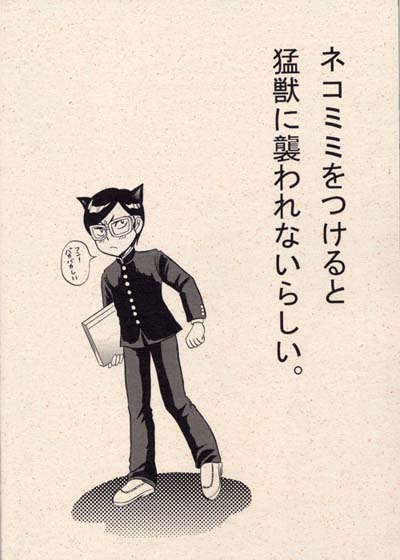 ネコミミをつけると
猛獣に襲われないらしい。
フン!
バカバカしい